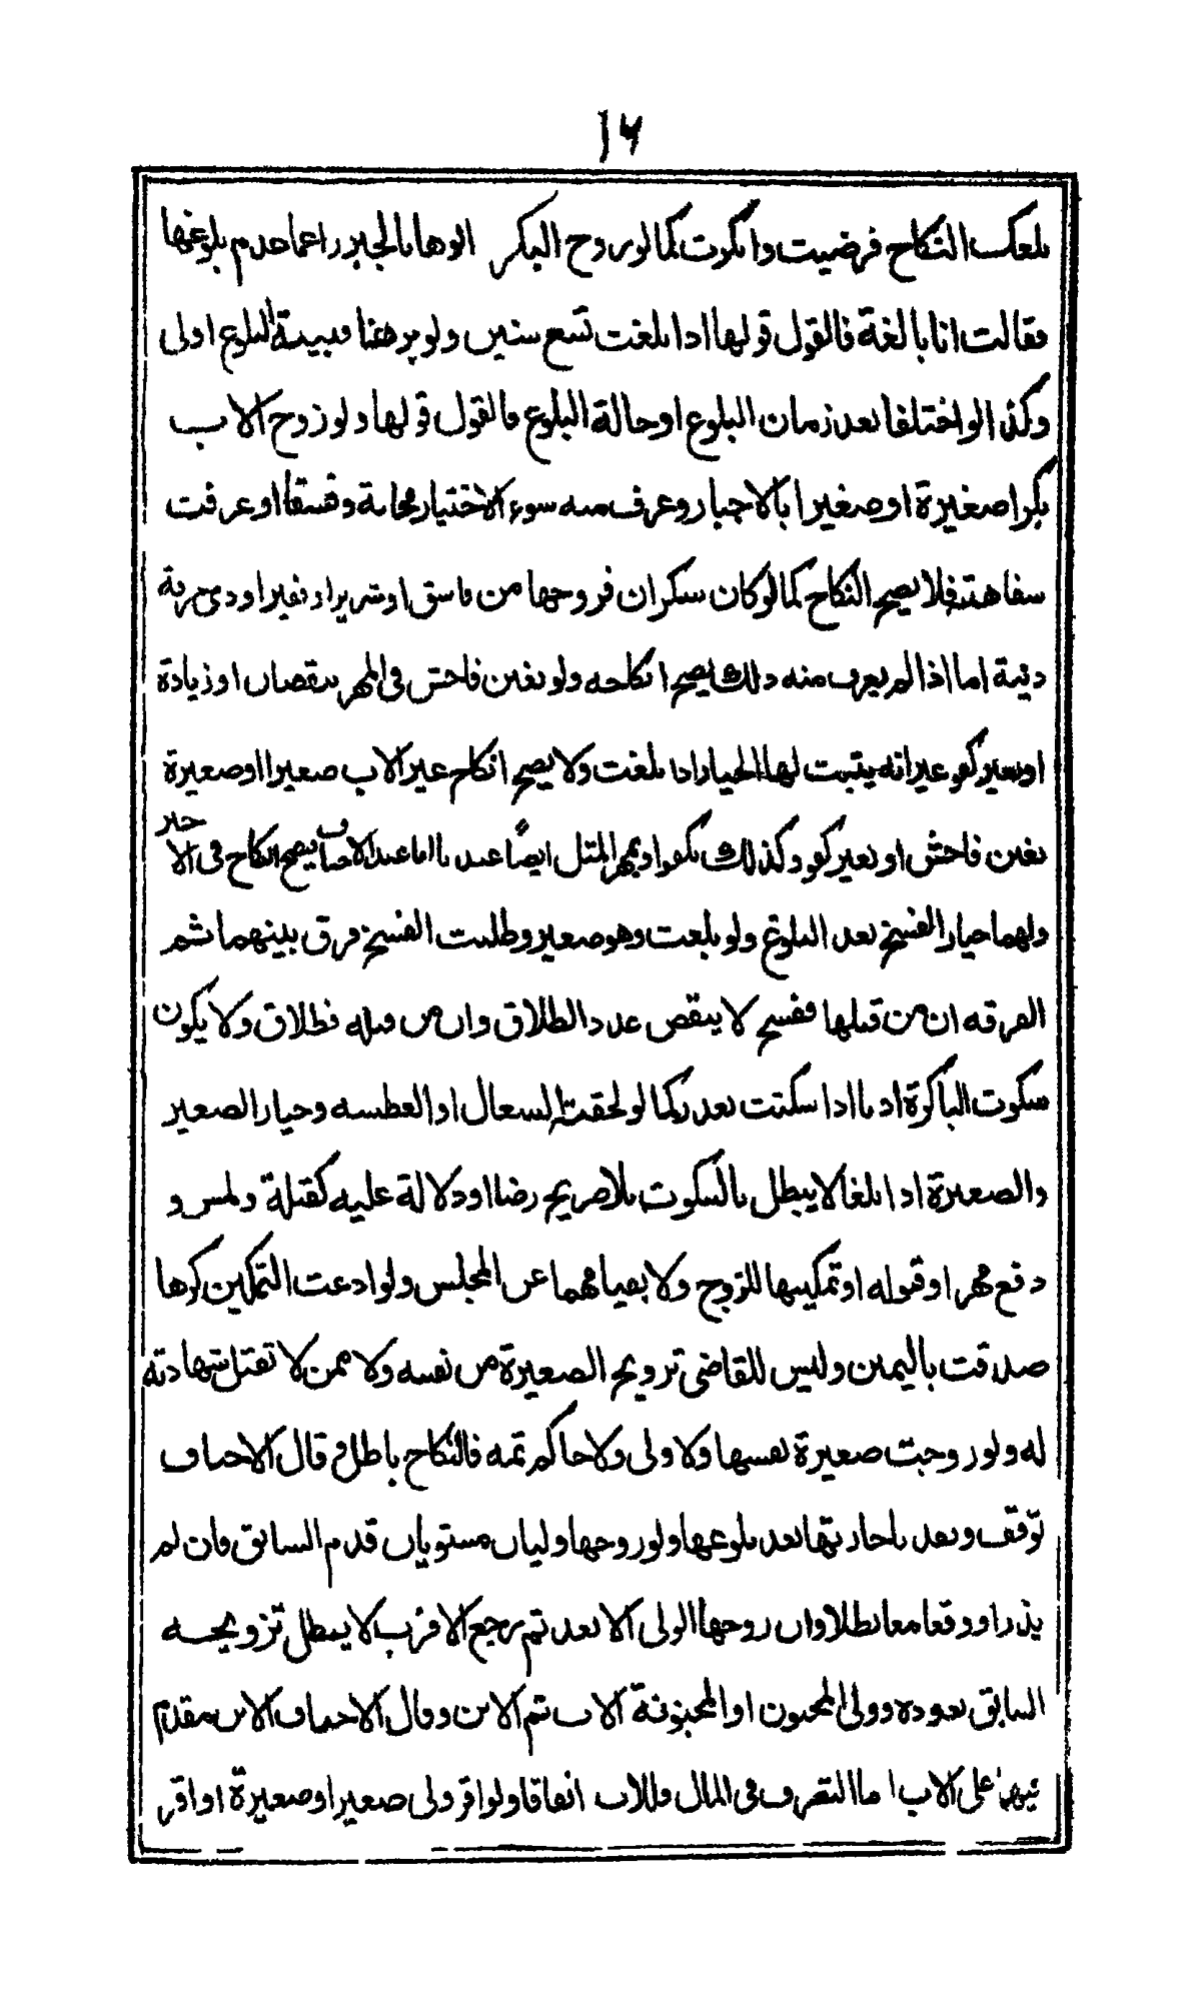 ١٦
بلعكس النكاح فرضيت وانكرت كما لو زوح البكر ابوها بالجبر زاعما عدم بلوغها
فقالت انا بالغة فالقول قولها اذا بلغت تسع سنين ولو برهنا فبينة البلوع اولى
وكذا لو اختلفا بعد زمان البلوع او حالة البلوع فالقول قولها ولو زوح الاب
بكرا صغيرة او صغيرا بالاجبار وعرف منه سوء الاختيار مجانة وفسقا او عرفت
سفاهته فلا يصح النكاح كما لو كان سكران فزوجها من فاسق او شرير او فقير او ذي حرفة
دنية اما اذا لم يعرف منه ذلك يصح انكاحه ولو بغبن فاحش في المهر بنقصان او زيادة
او بغير كفو غير انه يثبت لها الخيار اذا بلغت ولا يصح انكاح غير الاب صغيرا او صغيرة
بغبن فاحش او بغير كفو وكذلك بكفوا وبمهر المثل ايضا عندنا اما عند الاحناف يصح النكاح في الاخير
ولهما خيار الفسخ بعد البلوغ ولو بلغت وهو صغير وطلبت الفسخ فرق بينهما ثم
الفرقه ان من قبلها ففسخ لا ينقص عدد الطلاق وان من قبله فطلاق ولا يكون
سكوت الباكرة اذنا اذا سكتت بعذر كما لو لحقته السعال او العطسه وخيار الصغير
والصغيرة اذا بلغا لا يبطل بالسكوت بلا صريح رضا او دلالة عليه كقبلة ولمس و
دفع مهر او قوله او تمكينها للزوج ولا بقيامهما عن المجلس ولو ادعت التمكين كرها
صدقت باليمين وليس للقاضي تزويج الصغيرة من نفسه ولا ممن لا تقبل شهادته
له ولو زوجت صغيرة نفسها ولا ولي ولا حاكم ثمه فالنكاح باطل و قال الاحناف
توقف ونفذ باجازتها بعد بلوغها ولو زوجها وليان مستويان قدم السابق فان لم
يدر او وقعا معا بطلا وان زوجها الولي الابعد ثم رجع الاقرب لا يبطل تزويجه
السابق بعوده وولي المجنون او المجنونة الاب ثم الابن وقال الاحناف الابن مقدم
فيها على الاب اما التصرف في المال فللاب اتفاقا ولو اقر ولي صغير او صغيرة او اقر